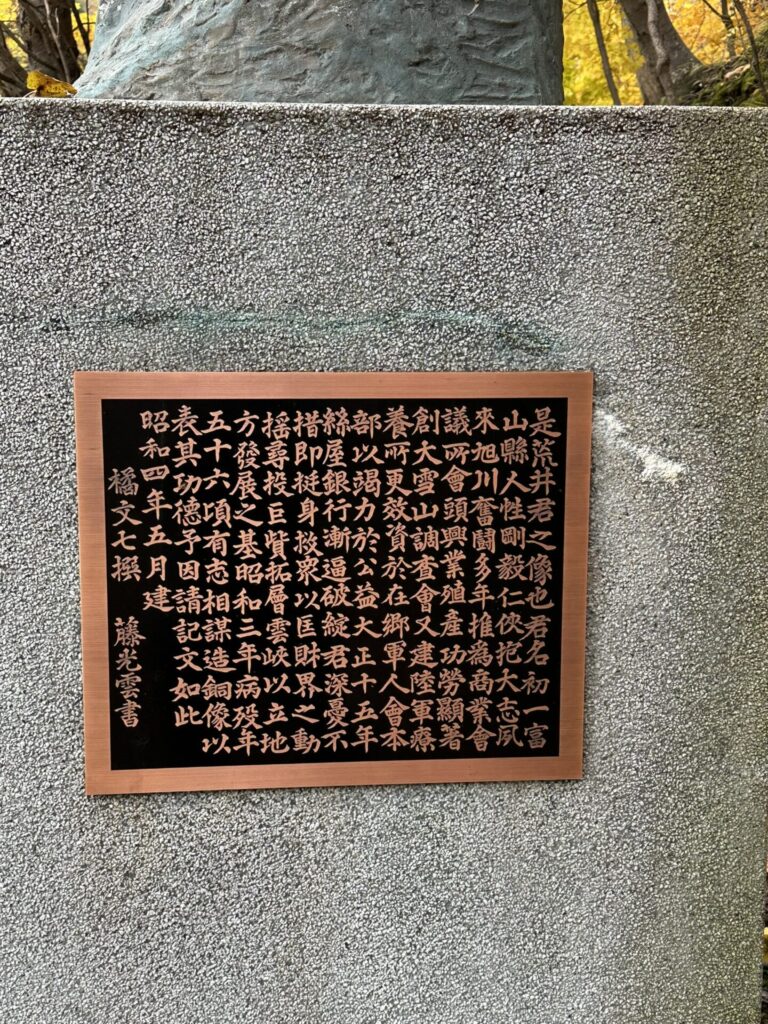 是荒井君之像也君名初一富
山縣人性剛毅仁俠抱大志夙
來旭川奮鬪多年推為商業會
議所會頭興業殖產功勞顯著
創大雪山調查會又建陸軍療
養所更效資於在鄉軍人會本
部以竭力於公益大正十五年
絲屋銀行漸逼破綻君深憂不
措即挺身救眾以匡財界之動
搖尋投巨貲拓層雲峽以立地
方發展之基昭和三年病歿年
五十六頃有志相謀造銅像以
表其功德予因請記文如此
昭和四年五月建
橘文七撰 藤光雲書